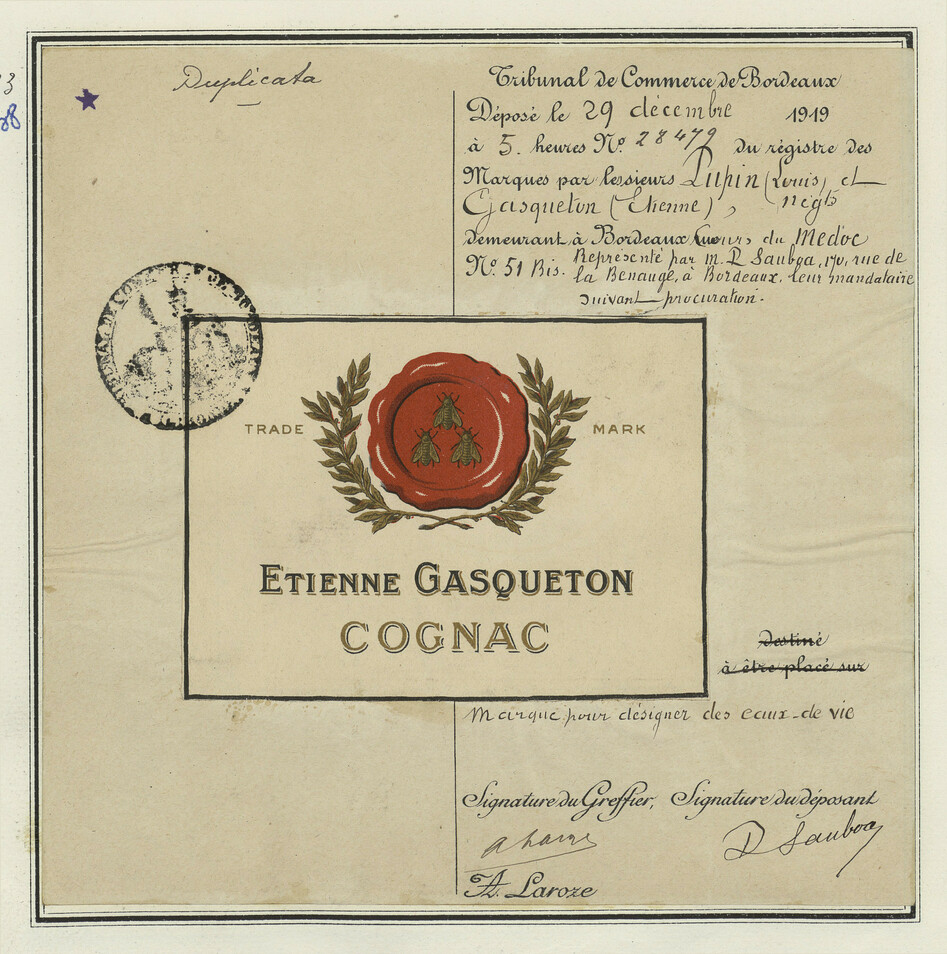 Duplicata
Tribunal de Commerce de Bordeaux
Déposé le 29 décembre 1919
à 5 heures No. 28479 du régistre des
Marques par les sieurs Lupin (Louis) et
Gasqueton (Etienne), négts
demeurant à Bordeaux Cours du Medoc
No. 51 Bis. Représenté par m. D Sauboa, 170, rue de
la Benauge, à Bordeaux, leur mandataire
suivant procuration.
TRADE MARK
ETIENNE GASQUETON
COGNAC
Destiné
à être placé sur
Marque pour désigner des eaux-de vie
Signature du Greffier, Signature du déposant
D Sauboa
A. Laroze